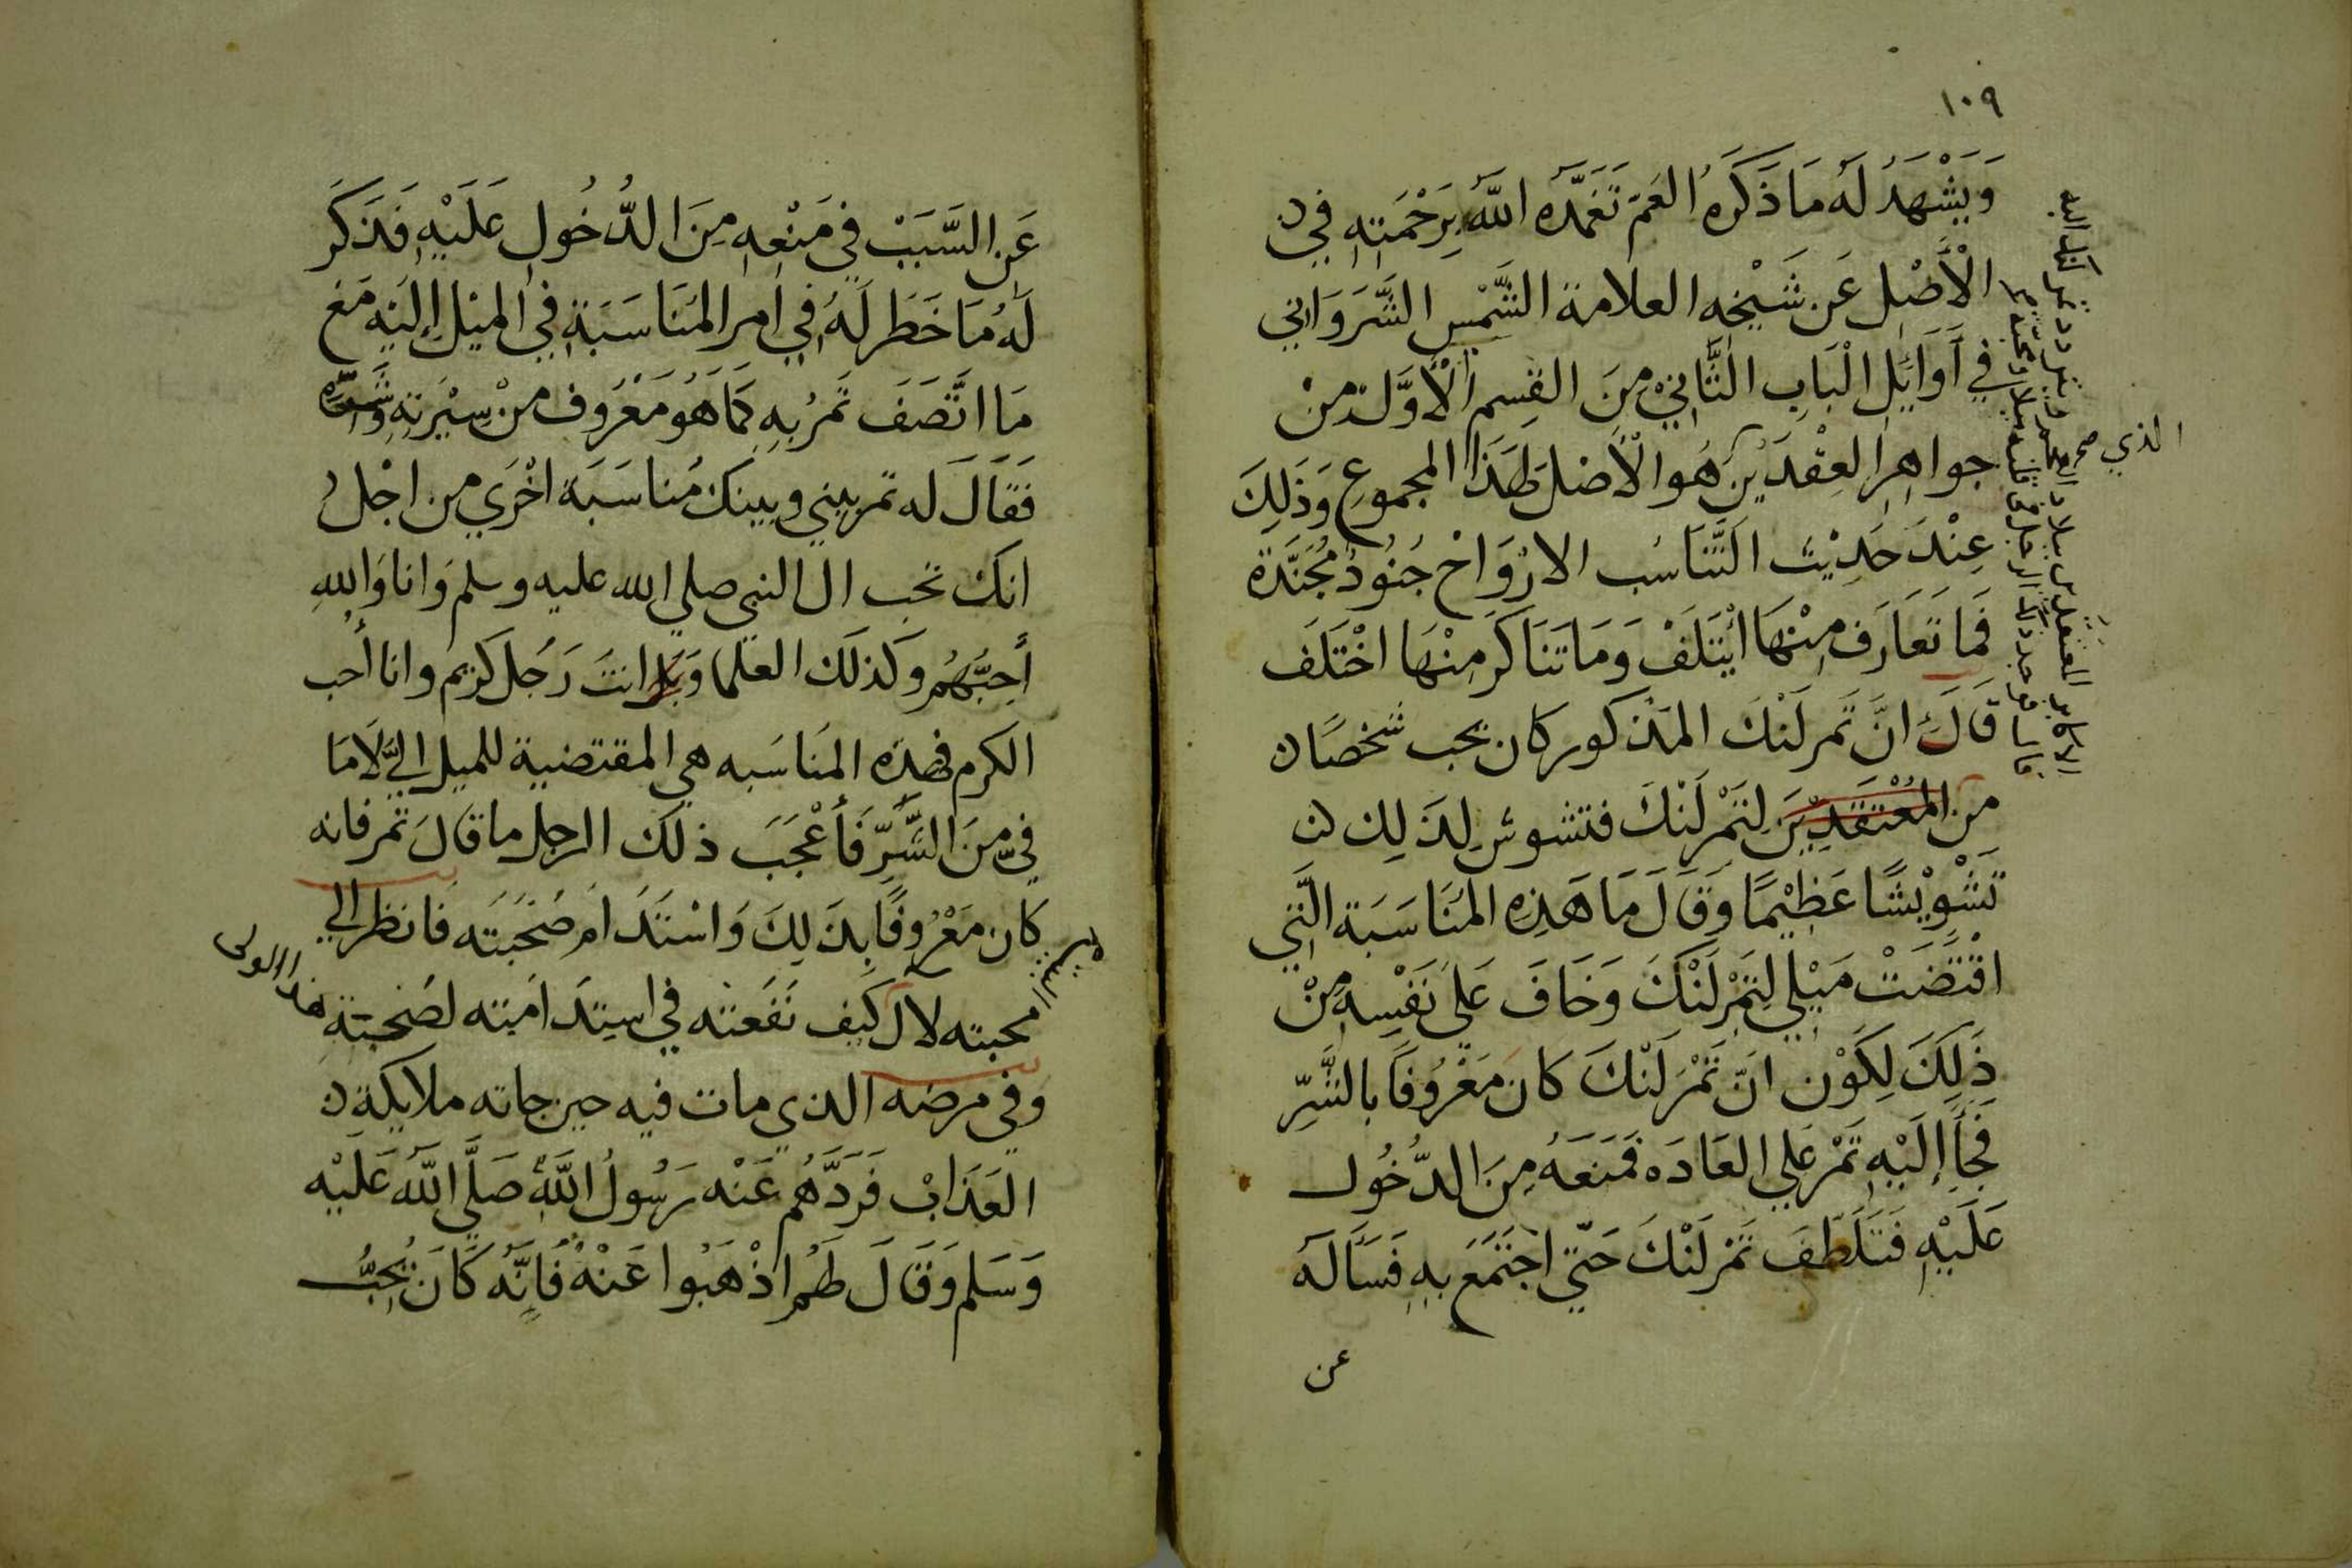 ١٠٩
وَيَشْهَدُ لَهُ مَا ذَكَرَهُ العَمّ تَغَمَّدَهُ اللَّهُ بِرَحْمَتِهِ فِي
الْأَصْلِ عَن شَيْخِه العلامة الشَّمْسِ الشَّرَوَانِي
فِي أَوَايِلِ الْبَابِ الثَّانِيْ مِنَ القِسمِ الْأَوَّل مِنْ
جواهِرِ العِقْدَيْن هُوَ الْأَصْل لِهَذَا المجموعِ وَذَلِكَ
الذي صح
عِنْدَ حَدِيْثِ التَّنَاسُب الارْوَاحْ جُنُودٌ مُجَنَّدَة
فَمَا تَعَارَف مِنْهَا ائْيَتَلَفْ وَمَا تَنَاكَرَ مِنْهَا اخْتَلَف
قَالَ انَّ تَمرلَنْكَ المَذكور كان يحب شخصًا
من المُعْتَقَدِيْنَ لِتَمْرلَنْكَ فتشوش لِذَلِك
تَشْوِيْشًا عَظِيْمًا وَقَالَ مَا هَذِهِ المُنَاسَبَة الَّتِي
اقْتَضَتْ مَيْلِي لِتَمْرلَنْكَ وَخَافَ عَلَى نَفْسِهِ مِنْ
ذَلِكَ لِكَوْن انّ تَمْرَلَنْكَ كانَ مَعْرُوفًا بالشَّرِّ
فَجَأَ إلَيْهِ تَمْر عَلي العَادَه فَمَنَعَهُ مِنَ الدُّخُول
عَلَيْهِ فَتَلَطَّفَ تَمْرلَنْكَ حَتّي اجْتَمَعَ بِهِ فَسَأَلَهُ
عن
عَن السَّبَبْ فِي مَنْعِهِ مِنَ الدُّخُولِ عَلَيْهِ فَذَكَرَ
لَهُ مَا خَطَرَ لَهُ فِي امر المُنَاسَبَةِ فِي المَيْلِ إلَيْهِ مَعَ
مَا اتَّصَفَ تَمْرُ بِهِ كَمَا هُوَ مَعْرُوف مِنْ سِيْرَتِهِ وَشَرِّه
فَقَالَ له تمر بيني وبينك مُنَاسَبَة اخْرَي من اجْل
انك تحب ال النبي صلي الله عليه وسلم وَانا وَاللهِ
أُحِبُّهُم وكذلَك العلما وَ انتَ رَجُل كريم وانا أحب
الكرم فهذِهِ المَناسَبه هي المقتضية للميل إليَّ لَا مَا
فيَّ مِنَ الشَّرِّ فَأَعْجَبَ ذلكَ الرجل ما قَالَ تمر فانه
كان مَعْرُوفًا بِذَلِكَ وَاسْتَنَدَ امر صُحْبَتَه فَانظر الي
محبته لال كيف نَفَعَتْه في اسِتِدَامَتِه لصُحْبَتِةِ
هذا الولى
وَفِي مرضه الذي مات فيه حين جاته ملايكَة
العَذَابْ فَرَدَّهُم عَنْه رَسُولُ اللَّهِ صَلَّي اللَّهُ عَلَيْه
وَسَلم وَقَالَ لَهُمْ اذْهَبُوا عَنْهُ فَإِنَّهُ كَانَ يُحِبُّ